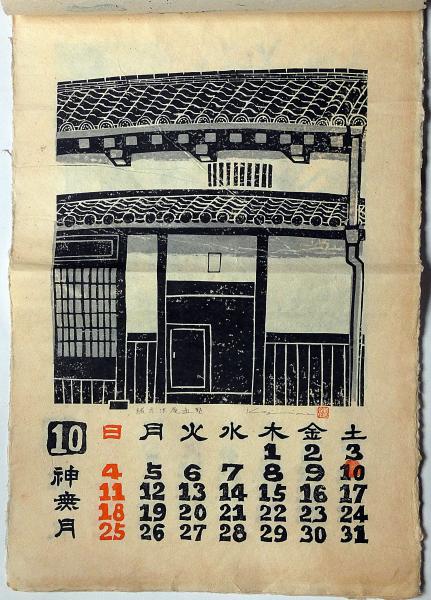 緒方洪庵旧塾
10
神無月
日 月 火 水 木 金 土
1 2 3
4 5 6 7 8 9 10
11 12 13 14 15 16 17
18 19 20 21 22 23 24
25 26 27 28 29 30 31